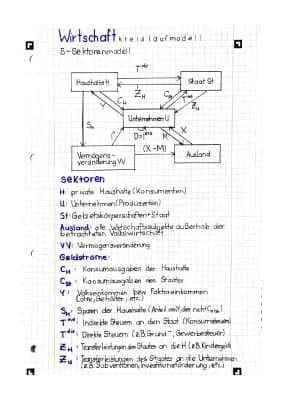 Wirtschaftskreislaufmodell
5-Sektorenmodell
T dir
Haushalte H
Staat St
Z H
Y
C H
C St
T ind
Z U
Unternehmen U
S H
D=I
M
X
(X-M)
Vermögens-
veränderung VV
Ausland
Sektoren
H: private Haushalte (Konsumenten)
U: Unternehmen (Produzenten)
St: Gebietskörperschaften + Staat
Ausland: alle Wirtschaftssubjekte außerhalb der
betrachteten Volkswirtschaft
VV: Vermögensveränderung
Geldströme:
C H: Konsumausgaben der Haushalte
C St: Konsumausgaben des Staates
Y: Volkseinkommen bzw. Faktoreinkommen
(Löhne, Gehälter, etc.)
S H: Sparen der Haushalte (Anteil am Y, der nicht C H ist)
T ind: Indirekte Steuern an den Staat (Konsumsteuern)
T dir: Direkte Steuern (z.B. Grund-, Gewerbesteuer)
Z H: Transferleistungen des Staates an die H (z.B. Kindergeld)
Z U: Transferleistungen des Staates an die Unternehmen
(z.B. Subventionen, Investitionsförderung, etc.)